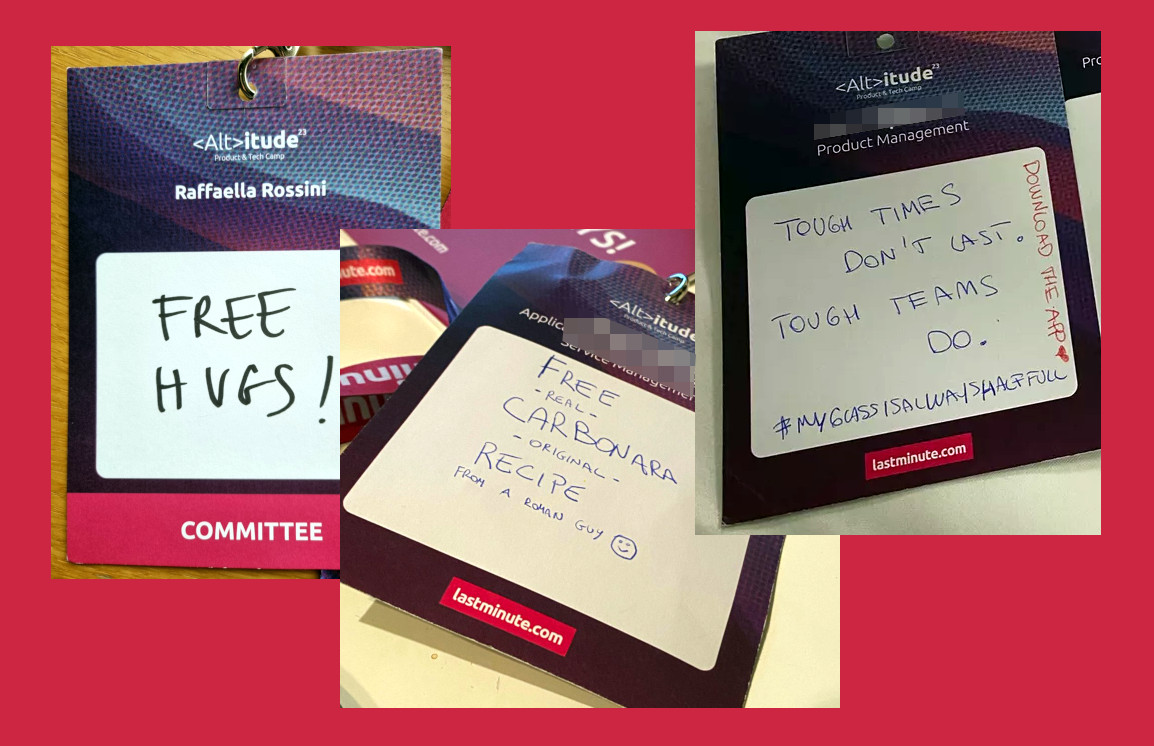 <Alt>itude23
Product & Tech Camp
Raffaella Rossini
FREE
HUGS!
COMMITTEE
YS!
te.com
ute.com
<Alt>itude
Product & Tech Camp
Applic
Service Managemen
FREE
-REAL-
CARBONARA
-ORIGINAL-
RECIPE
FROM A ROMAN GUY
lastminute.com
<Alt>itude23
Product & Tech Camp
Product Management
TOUGH TIMES
DON'T LAST.
TOUGH TEAMS
DO.
#MYGLASSISALWAYSHALFFULL
DOWNLOAD THE APP
lastminute.com
Pro